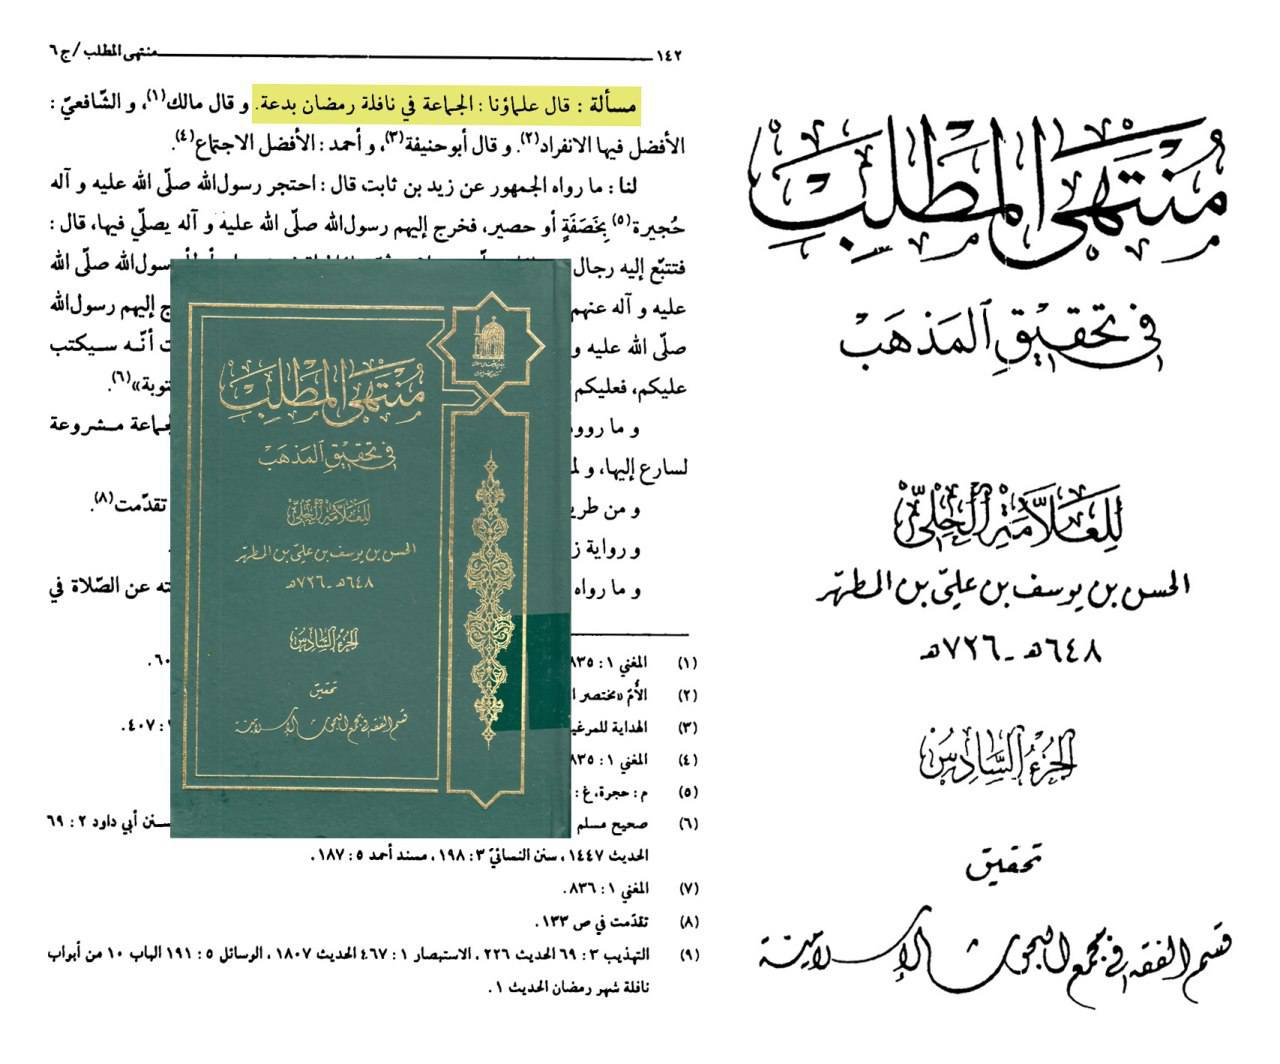 ١٤٢ منتهى المطلب / ج ٦
مسألة : قال علماؤنا : الجماعة في نافلة رمضان بدعة. و قال مالك(١)، و الشّافعيّ :
الأفضل فيها الانفراد(٢). و قال أبوحنيفة(٣)، و أحمد : الأفضل الاجتماع(٤).
لنا : ما رواه الجمهور عن زيد بن ثابت قال : احتجر رسول‌الله صلّى الله عليه و آله
حُجيرة(٥) بِخَصَفَةٍ أو حصير، فخرج إليهم رسول‌الله صلّى الله عليه و آله يصلّي فيها، قال :
فتتبّع إليه رجال
سول‌الله صلّى الله
عليه و آله عنهم
إليهم رسول‌الله
صلّى الله عليه و
أنّه سيكتب
عليكم، فعليكم
توبة»(٦).
و ما رووه
جماعة مشروعة
لسارع إليها، و
و من طري
تقدّمت(٨).
و رواية
و ما رواه
عن الصّلاة في
(١) المغني ١ : ٨٣٥
(٢) الأُمّ «مختصر
(٣) الهداية للمرغي
: ٤٠٧.
(٤) المغني ١ : ٨٣٥
(٥) م : حجرة، غ :
(٦) صحيح مسلم
سنن أبي داود ٢ : ٦٩
الحديث ١٤٤٧، سنن النسائيّ ٣ : ١٩٨، مسند أحمد ٥ : ١٨٧.
(٧) المغني ١ : ٨٣٦.
(٨) تقدّمت في ص ١٣٣.
(٩) التهذيب ٣ : ٦٩ الحديث ٢٢٦، الاستبصار ١ : ٤٦٧ الحديث ١٨٠٧، الوسائل ٥ : ١٩١ الباب ١٠ من أبواب
نافلة شهر رمضان الحديث ١.
مُنْتَهَى المَطْلَبِ
في تحقيقِ المَذهَبْ
لِلعَلاَّمَةِ الحِلّيّ
الحسن بن يوسف بن عليّ بن المطهّر
٦٤٨هـ - ٧٢٦هـ
الجزءُ السَّادِسُ
تحقيق
قسم الفقه في مجمع البحوث الإسلامية
مُنْتَهَى المَطْلَبِ
في تحقيقِ المَذهَبْ
لِلعَلاَّمَةِ الحِلّيّ
الحسن بن يوسف بن عليّ بن المطهّر
٦٤٨هـ - ٧٢٦هـ
الجزءُ السَّادِسُ
تحقيق
قسم الفقه في مجمع البحوث الإسلامية